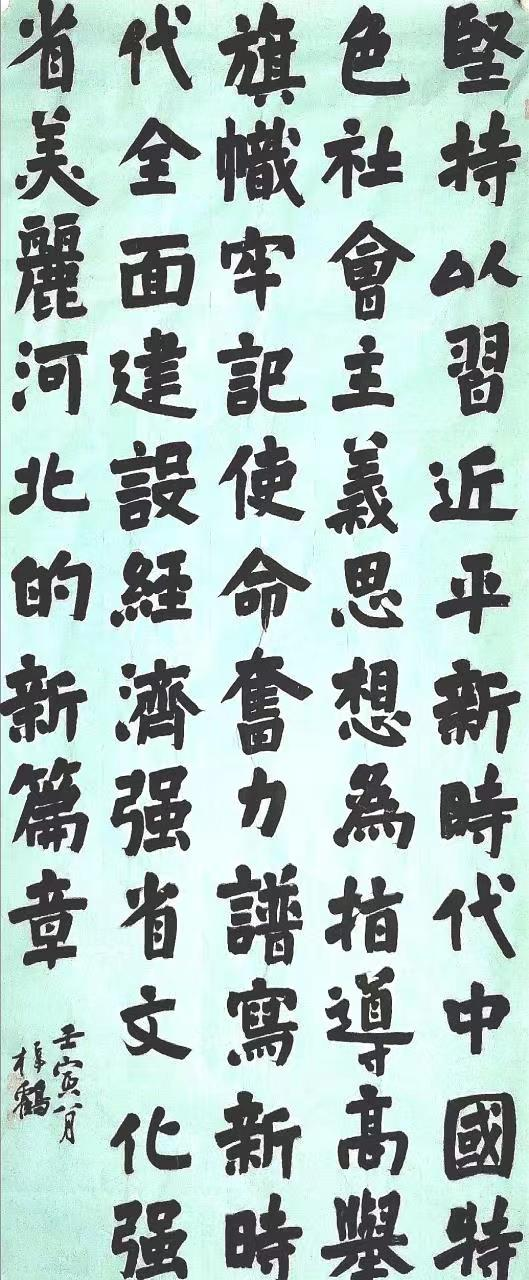 堅持以習近平新時代中國特
色社會主義思想為指導高舉
旗幟牢記使命奮力譜寫新時
代全面建設經濟强省文化强
省美麗河北的新篇章
壬寅八月